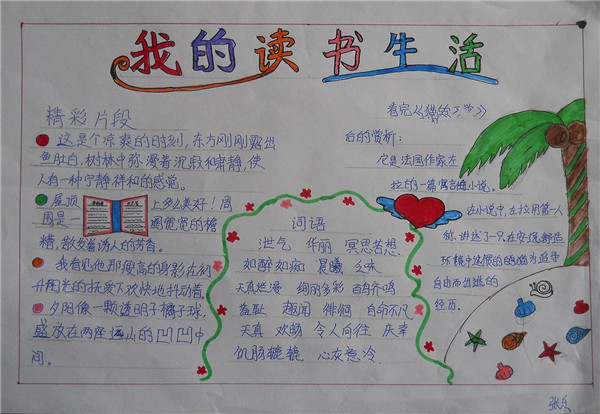 我的读书生活
精彩片段
这是个凉爽的时刻,东方刚刚露出
鱼肚白,树林中弥漫着沉寂和肃静,使
人有一种宁静祥和的感觉。
屋顶上多么美好!周
围是一圈宽宽的檐
糟,散发着诱人的芳香。
我看见他那瘦高的身影在
月光的抚爱下欢快地抖动着
夕阳像一颗透明子橘子球,
盛放在两座远山的凹凹中
间。
词语
泄气 华丽 冥思苦想
如醉如痴 晨曦 乏味
天真烂漫 绚丽多彩 百鸟齐鸣
羞耻 趣闻 徘徊 自命不凡
天真 欢畅 令人向往 庆幸
饥肠辘辘 心灰意冷
看完《猫的
后的赏析:
它是法国作家左
拉的一篇寓言小说。
在小说中,左拉用第一人
称,讲述了一只在安逸舒适
环境中迷惯的的猫为追寻
自由而出逃的
经历。